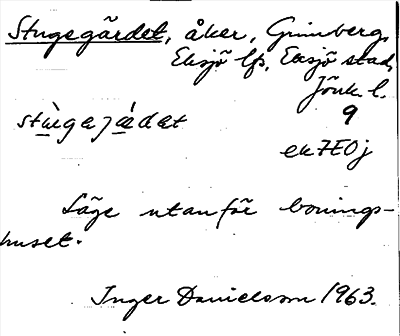 Stugegärdet, åker, Grinnberg,
Eksjö lfs, Eksjö stad,
Jönk. l.
9
stùgejǽdet
ek7E0j
Läge utanför bonings-
huset.
Inger Danielsson 1963.